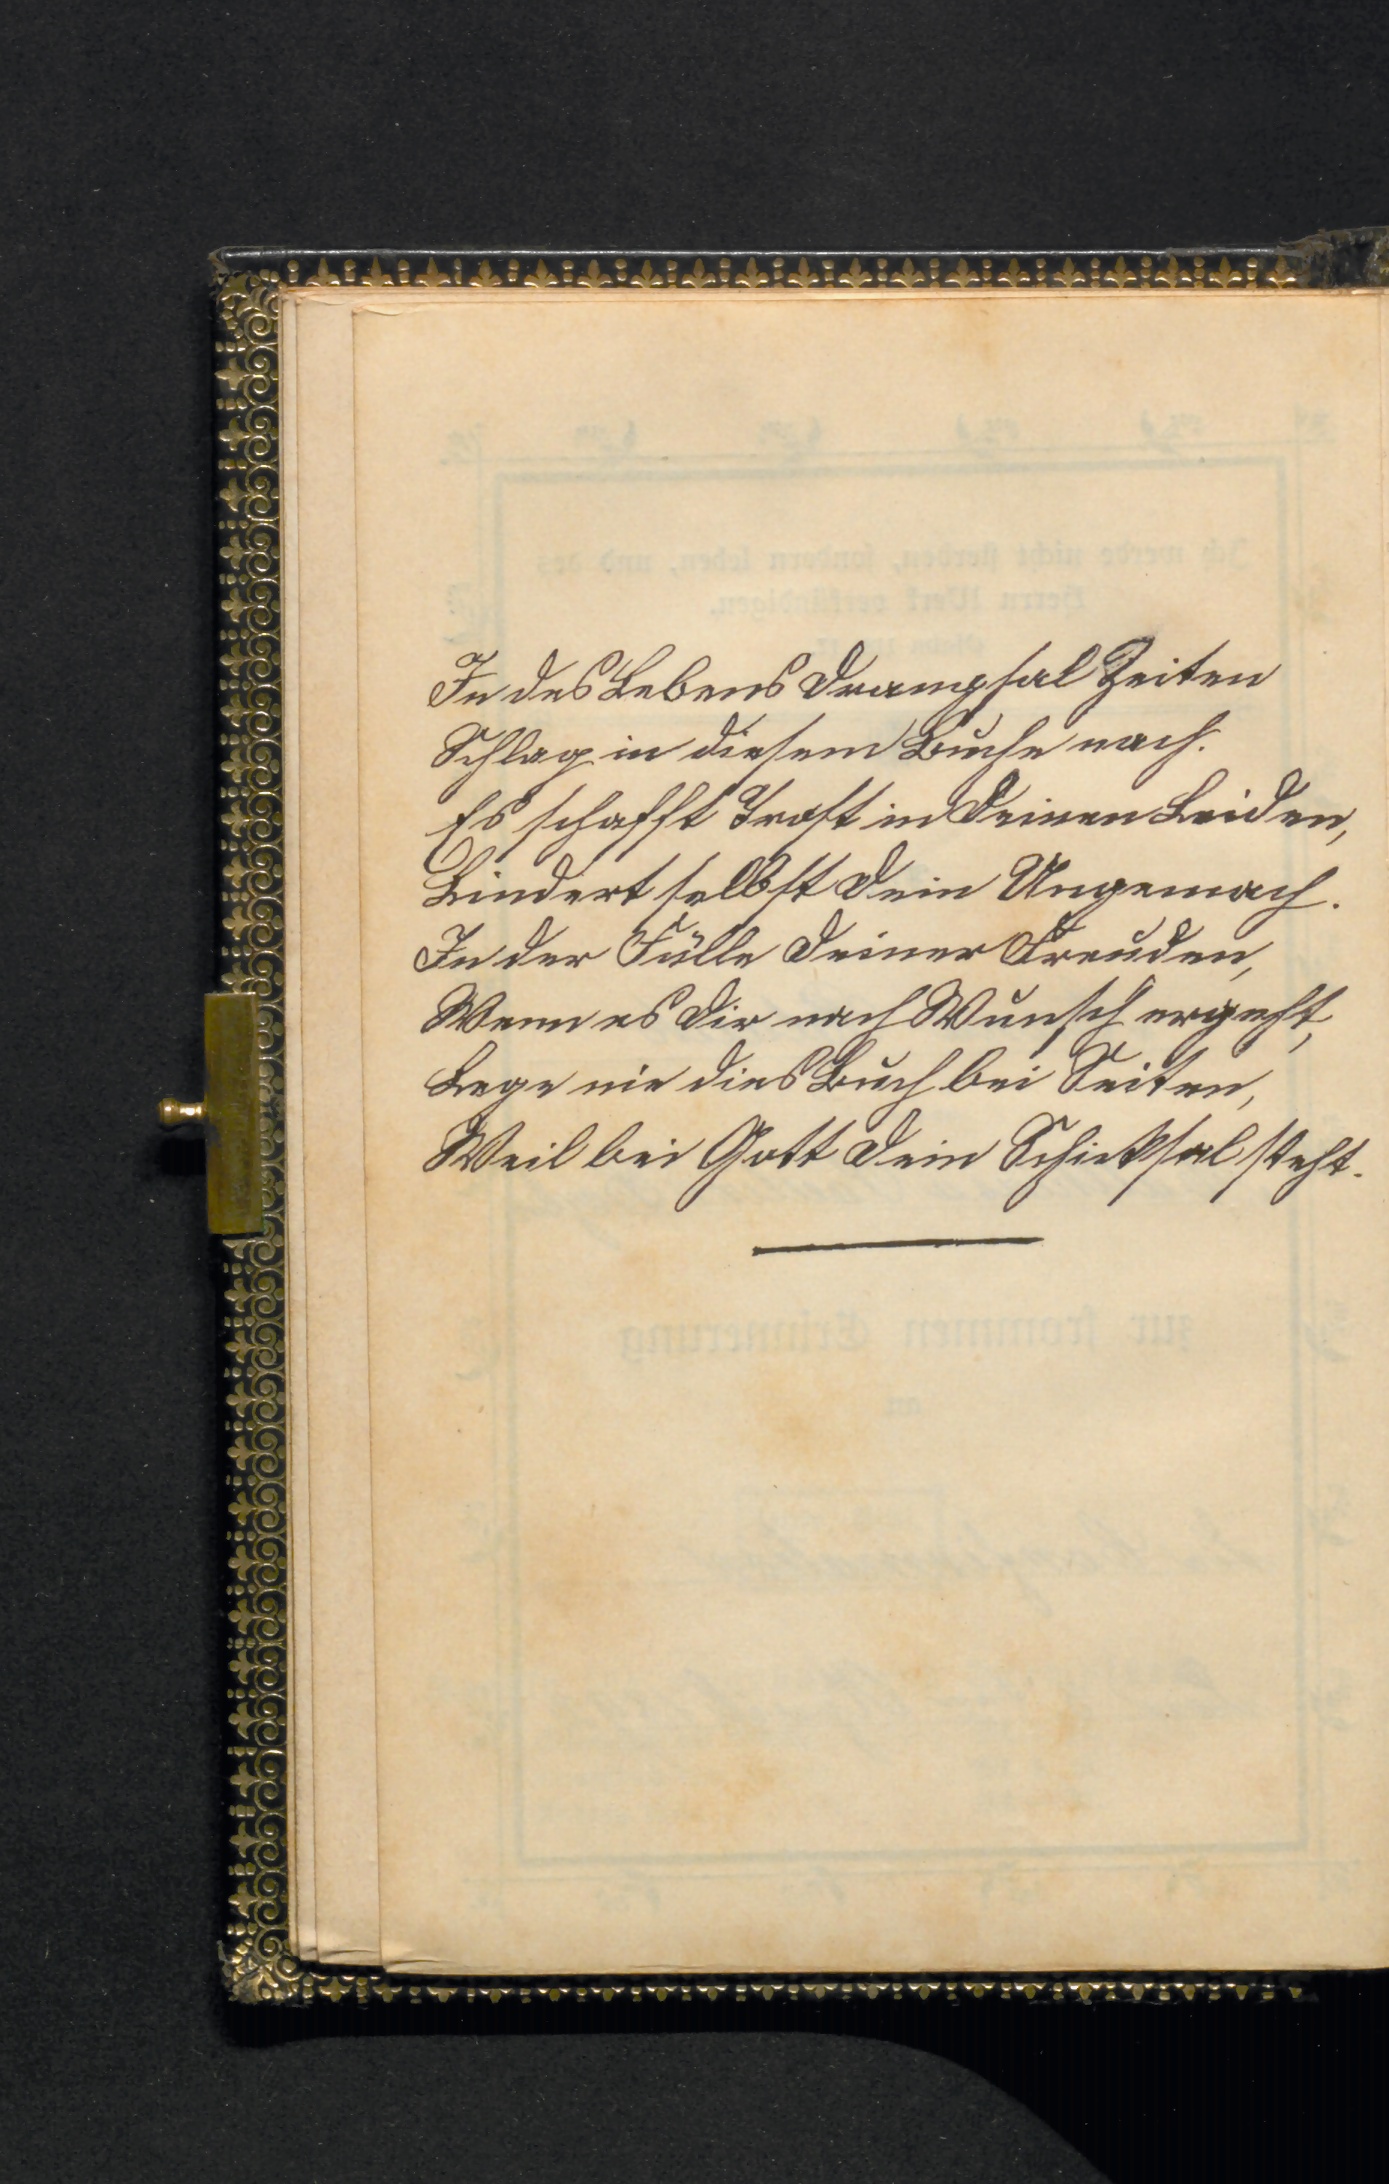 In des Lebens Drangsal Zeiten
Schlag in diesem Buche nach.
Es schafft Trost in Deinen Leiden,
Lindert selbst Dein Ungemach.
In der Fülle Deiner Freuden,
Wenn es Dir nach Wunsch ergeht,
Lege nie dies Buch bei Seiten,
Weil bei Gott Dein Schicksal steht.
Ich werde nicht sterben, sondern leben, und des
Herrn Werk verkündigen.
zur frommen Erinnerung
an